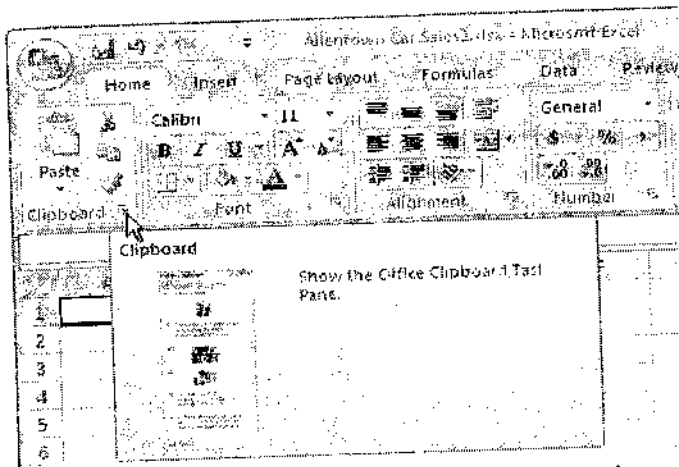 Allentown Car Sales2.xlsx - Microsoft Excel
Home Insert Page Layout Formulas Data Review
Calibri 11 General
B I U A A $ %
Paste .00
Clipboard Font Alignment Number
Clipboard
Show the Office Clipboard Task
Pane.
1
2
3
4
5
6